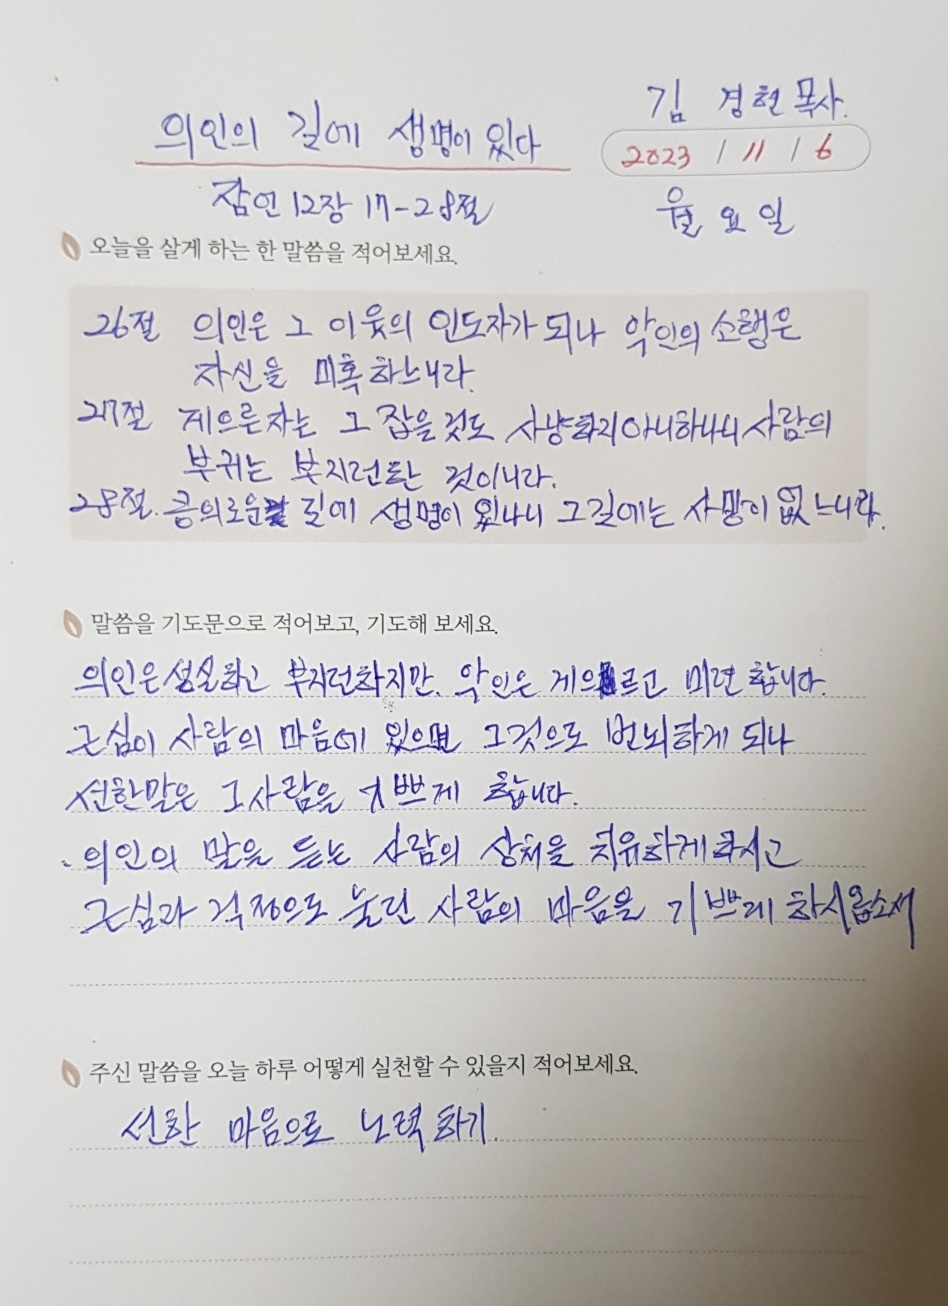 김 경현 목사.
의인의 길에 생명이 있다
2023 / 11 / 6
잠언 12장 17-28절
월요일
오늘을 살게 하는 한 말씀을 적어보세요.
26절 의인은 그 이웃의 인도자가 되나 악인의 소행은
자신을 미혹하느니라.
27절 게으른자는 그 잡을것도 사냥하지아니하나니 사람의
부귀는 부지런한 것이니라.
28절. 공의로운 길에 생명이 있나니 그길에는 사망이 없느니라.
말씀을 기도문으로 적어보고, 기도해 보세요.
의인은 성실하고 부지런하지만. 악인은 게으르고 미련 합니다.
근심이 사람의 마음에 있으면 그것으로 번뇌하게 되나
선한말은 그사람을 기쁘게 합니다.
의인의 말을 듣는 사람의 상처을 치유하게하시고
근심과 걱정으로 눌린 사람의 마음을 기쁘게 하시옵소서
주신 말씀을 오늘 하루 어떻게 실천할 수 있을지 적어보세요.
선한 마음으로 노력하기.